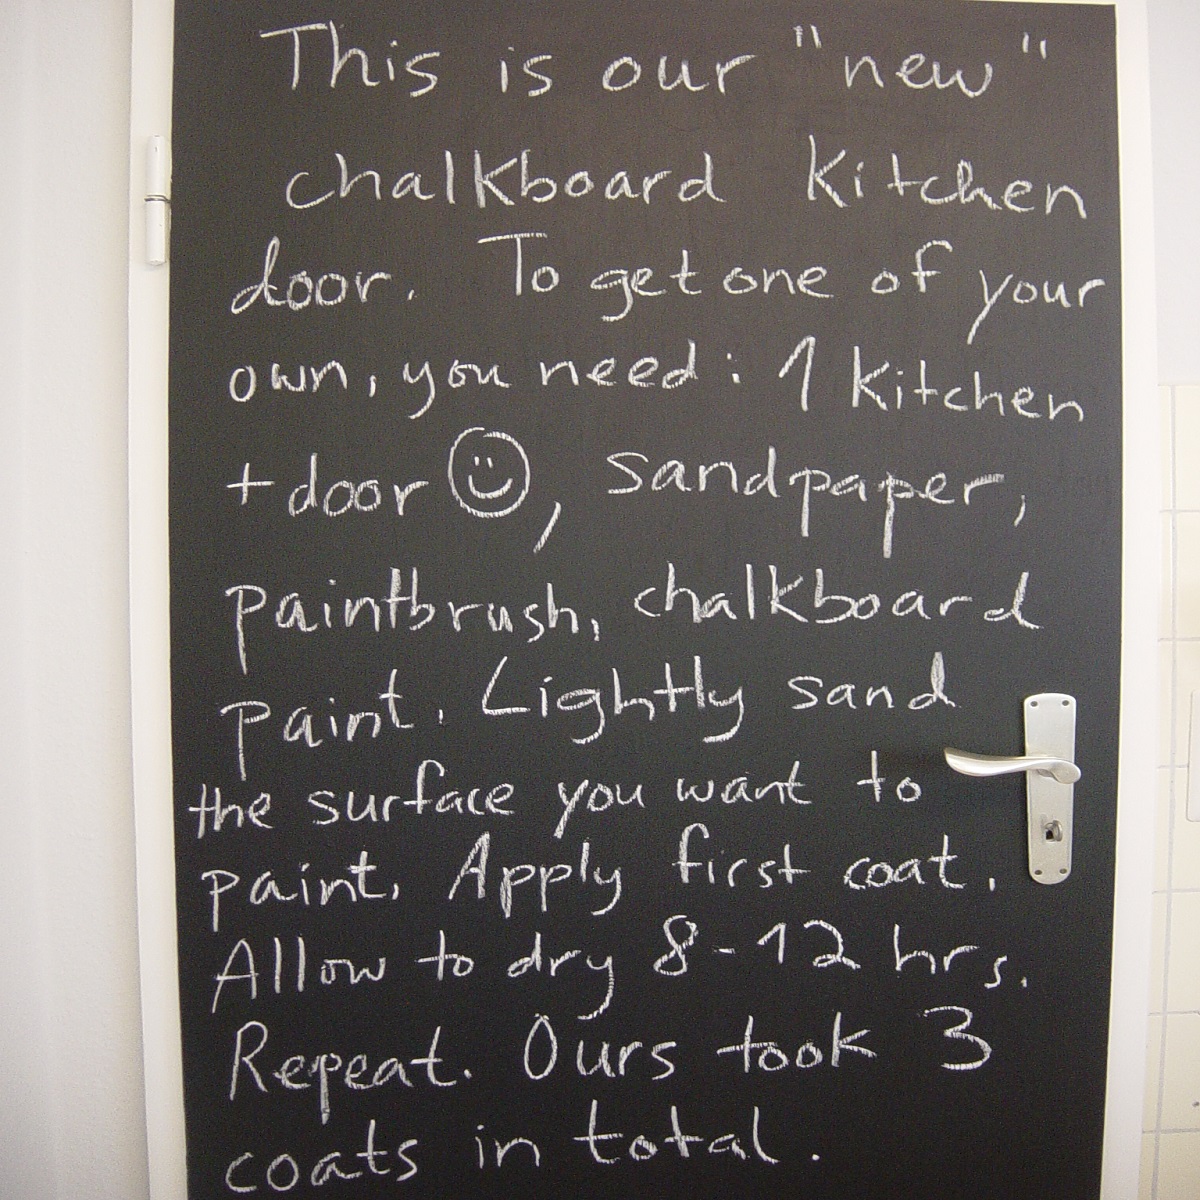 This is our "new"
chalkboard kitchen
door. To get one of your
own, you need: 1 kitchen
+ door ☺, sandpaper,
paintbrush, chalkboard
paint. Lightly sand
the surface you want to
paint. Apply first coat.
Allow to dry 8-12 hrs.
Repeat. Ours took 3
coats in total.